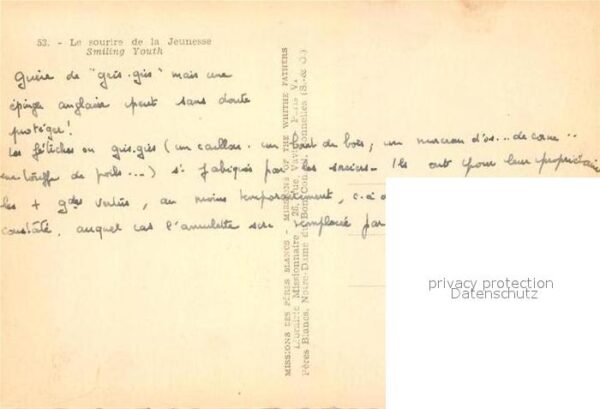 53. - Le sourire de la Jeunesse
Smiling Youth
Guère de "gris-gris" mais une
épingle anglaise peut sans doute
protéger!
Les fétiches ou gris-gris (un caillou. un bout de bois, un morceau d'os... de corne..
une touffe de poils...) st fabriqués par les sorciers - Ils ont pour leur propriétaire
les + gdes vertus, au moins temporairement, c.à d
constaté, auquel cas l'amulette sera remplacée par
MISSIONS DES PÈRES BLANCS - MISSIONS OF THE WHITHE FATHERS
Librairie Missionnaire - 26, Rue Paris V.
Pères Blancs, Notre-Dame du Bon Conseil, (S.-& O.)
privacy protection
Datenschutz